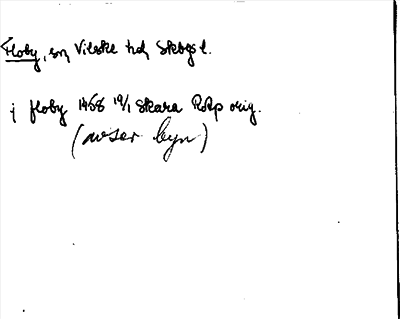 Floby, sn, Vilske hd, Skbgs l.
j floby 1458 19/1 Skara RApp orig.
(avser byn)